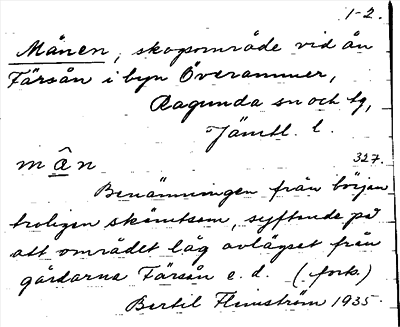 1-2.
Månen, skogsområde vid ån
Färsån i byn Överammer,
Ragunda sn och tg,
Jämtl. l.
mân 327.
Benämningen från början
troligen skämtsam, syftande på
att området låg avlägset från
gårdarna Färsån e. d. (fork.)
Bertil Flemström 1935.